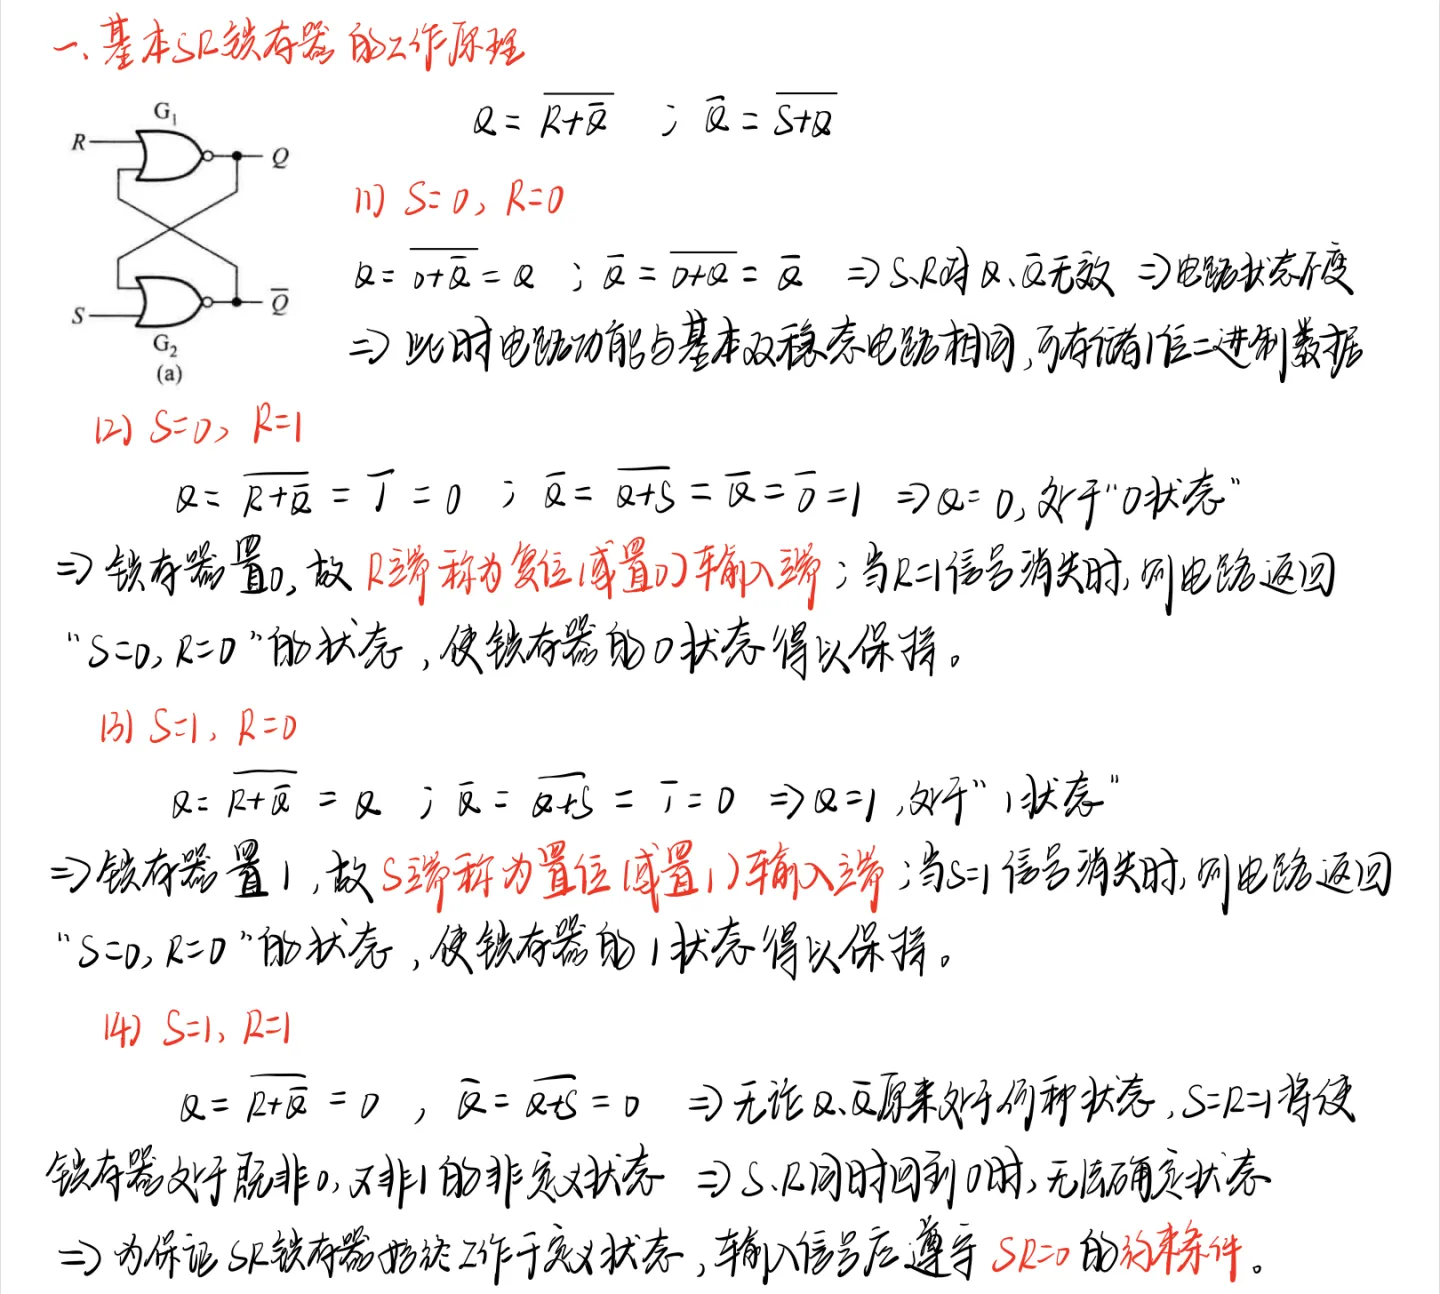 一、基本SR锁存器的工作原理
G₁
R
Q
S
Q̅
G₂
(a)
Q = \overline{R+\overline{Q}} ; \overline{Q} = \overline{S+Q}
(1) S=0, R=0
Q = \overline{0+\overline{Q}} = Q ; \overline{Q} = \overline{0+Q} = \overline{Q} ⇒ S、R对Q、\overline{Q}无效 ⇒ 电路状态不变
⇒ 此时电路功能与基本双稳态电路相同,可存储1位二进制数据
(2) S=0, R=1
Q = \overline{R+\overline{Q}} = \overline{1} = 0 ; \overline{Q} = \overline{Q+S} = \overline{Q} = \overline{0} = 1 ⇒ Q=0, 处于“0状态”
⇒ 锁存器置0, 故R端称为复位(或置0)输入端; 当R=1信号消失时, 则电路返回
“S=0, R=0”的状态, 使锁存器的0状态得以保持。
(3) S=1, R=0
Q = \overline{R+\overline{Q}} = Q ; \overline{Q} = \overline{Q+S} = \overline{1} = 0 ⇒ Q=1, 处于“1状态”
⇒ 锁存器置1, 故S端称为置位(或置1)输入端; 当S=1信号消失时, 则电路返回
“S=0, R=0”的状态, 使锁存器的1状态得以保持。
(4) S=1, R=1
Q = \overline{R+\overline{Q}} = 0 , \overline{Q} = \overline{Q+S} = 0 ⇒ 无论Q、\overline{Q}原来处于何种状态, S=R=1将使
锁存器处于既非0, 又非1的非定义状态 ⇒ S、R同时回到0时, 无法确定状态
⇒ 为保证SR锁存器始终工作于定义状态, 输入信号应遵守SR=0的约束条件。